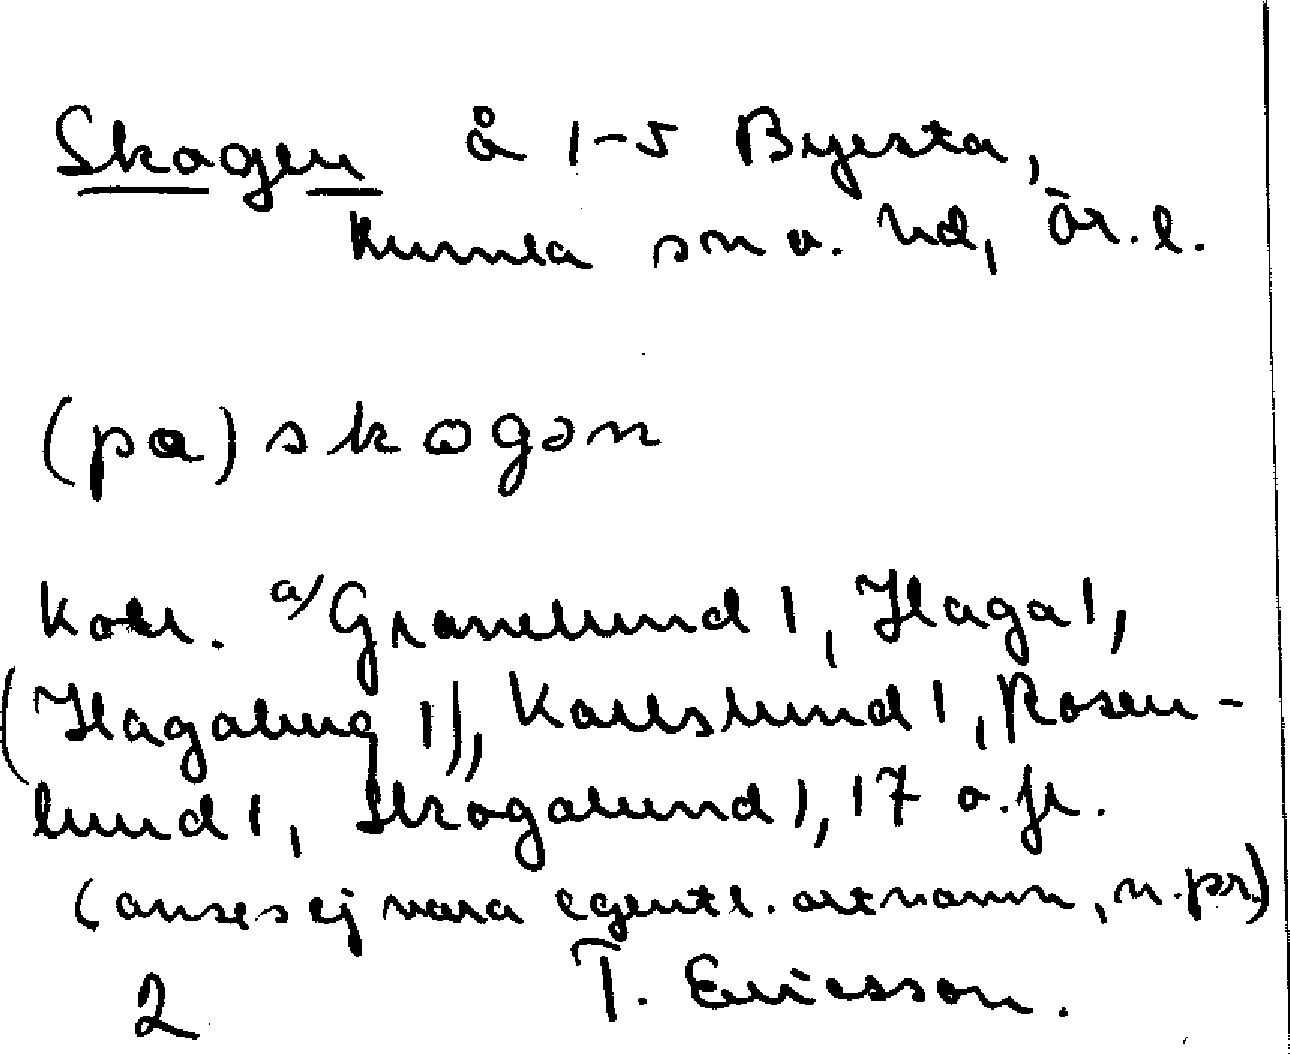 Skogen å 1-5 Byesta,
Kumla sn o. hd, Är. l.
(pa) skogən
Koll. a) Granelund 1, Haga 1,
(Hagaberg 1), Karlslund 1, Rosen-
lund 1, Skogalund 1, 17 o. fl.
(anses ej vara egentl. ortnamn, n. pr.)
2 T. Ericsson.